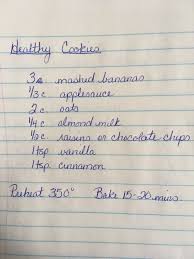 Healthy Cookies
3 mashed bananas
1/3 c applesauce
2 c oats
1/4 c almond milk
1/2 c raisins or chocolate chips
1 tsp vanilla
1 tsp cinnamon
Preheat 350° Bake 15-20 mins